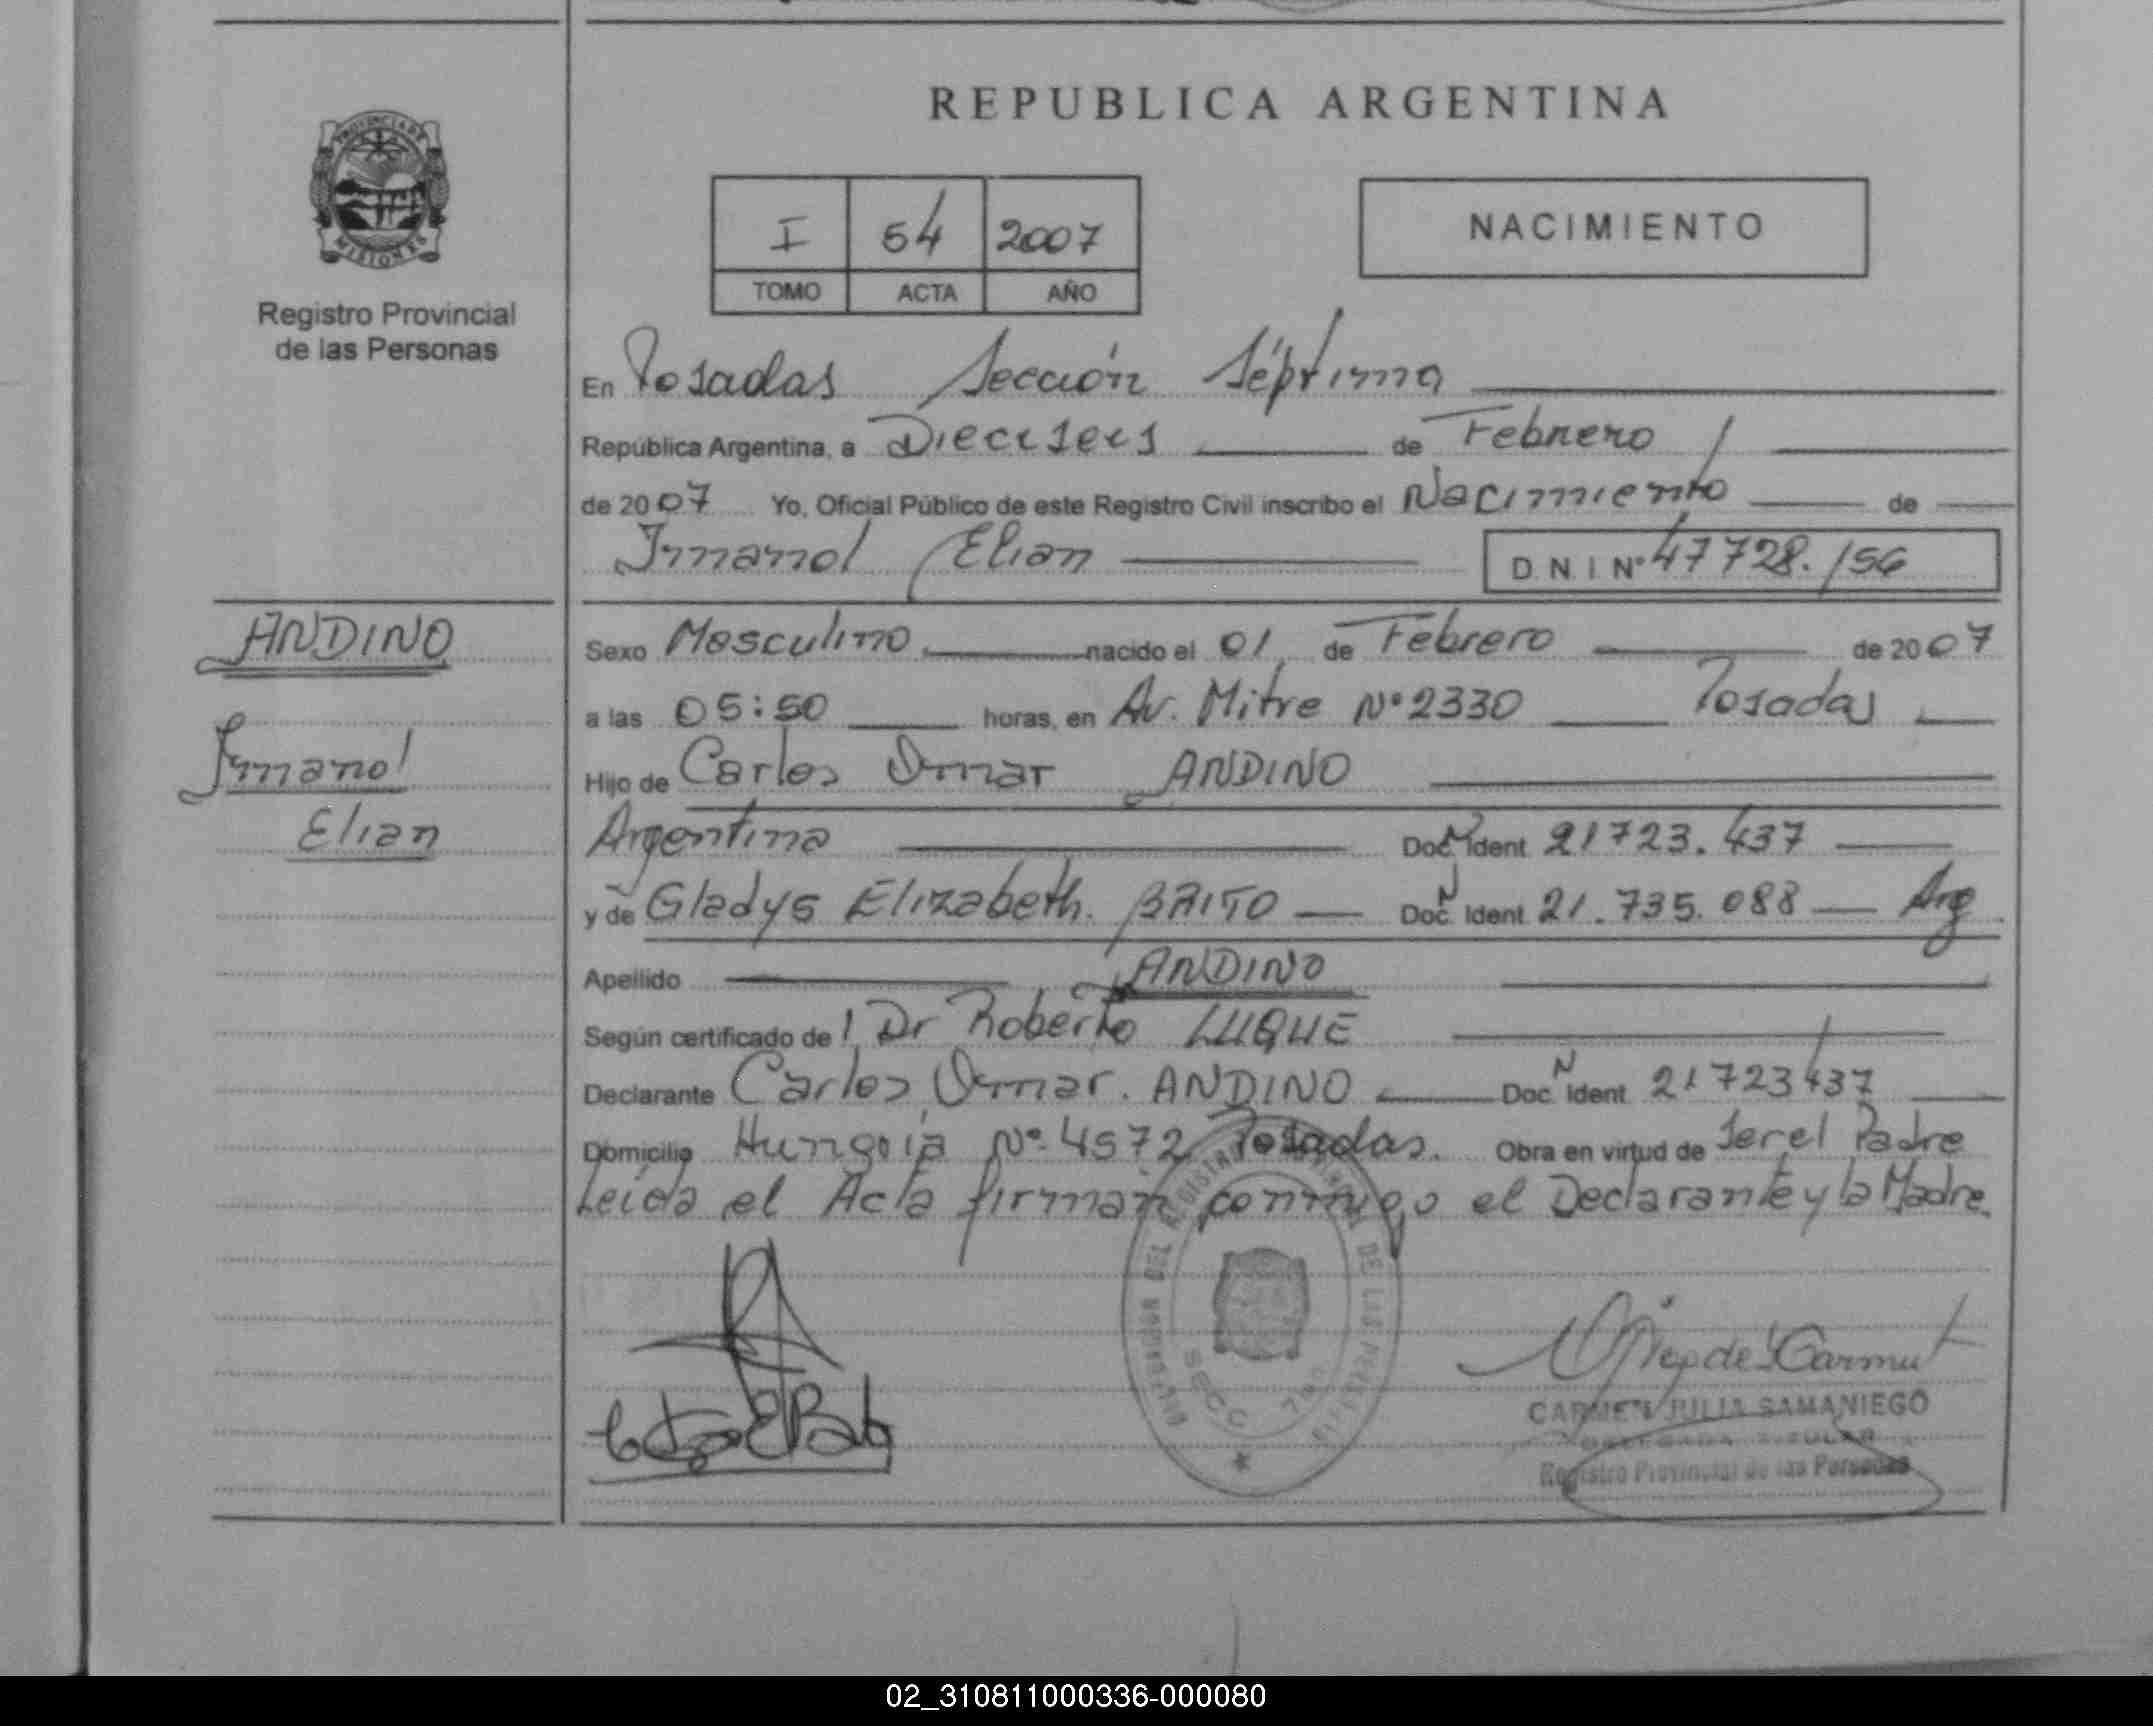 REPUBLICA ARGENTINA
PROVINCIA DE
MISIONES
Registro Provincial
de las Personas
I 54 2007
TOMO ACTA AÑO
NACIMIENTO
En Posadas Sección Séptima
República Argentina, a Dieciseis de Febrero
de 2007 Yo, Oficial Público de este Registro Civil inscribo el Nacimiento de
Elian D.N.I Nº 47728.156
ANDINO
Elian
Sexo Masculino nacido el 01 de Febrero de 2007
a las 05:50 horas, en Av. Mitre Nº 2330 Posadas
Hijo de Carlos Omar ANDINO
Argentina Doc. N Ident 21723.437
y de Gladys Elizabeth. BRITO Doc. N Ident 21.735.088 Arg
Apellido ANDINO
Según certificado de l Dr Roberto LUQUE
Declarante Carlos Omar. ANDINO Doc. N Ident 21723437
Domicilio Nº 4572 Posadas. Obra en virtud de Ser el Padre
Leída el Acta firman conmigo el Declarante y la Madre.
SECC
CARMEN JULIA SAMANIEGO
DELEGADA TITULAR
Registro Provincial de las Personas
02_310811000336-000080